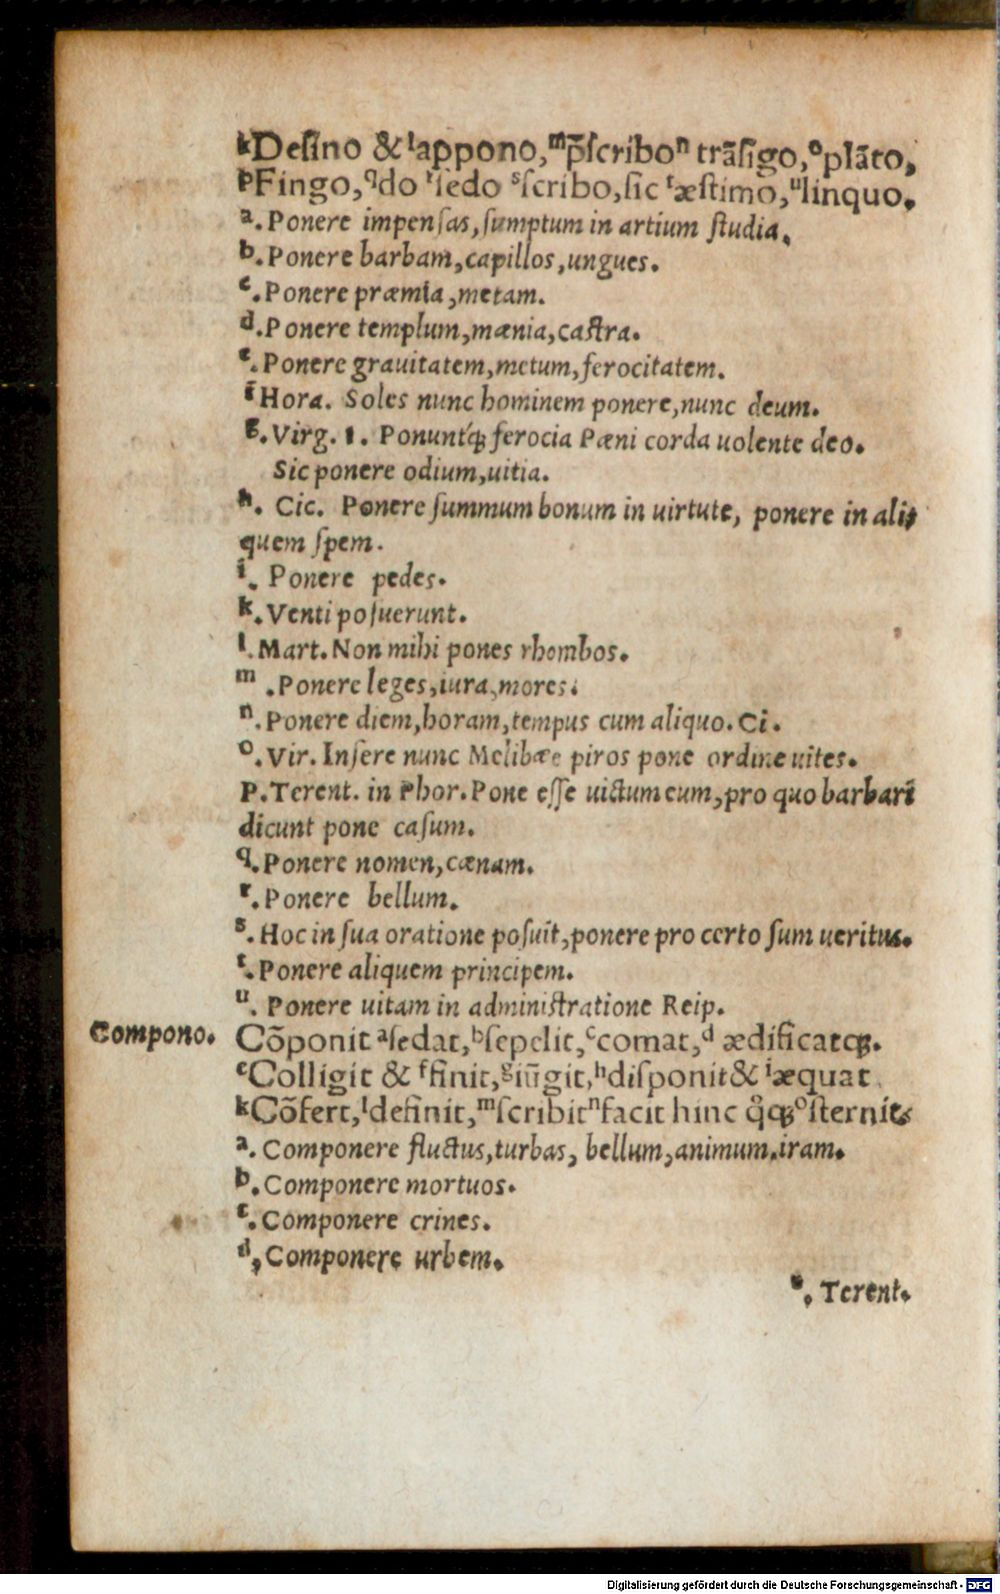 ᵏDeſino & ˡappono, ᵐp̄ſcribo ⁿ trãſigo, ᵒplãto,
ᵖFingo, ᑫdo ʳſedo ˢſcribo, ſic ᵗæſtimo, ᵘlinquo.
ᵃ. Ponere impenſas, ſumptum in artium ſtudia.
ᵇ. Ponere barbam, capillos, ungues.
ᶜ. Ponere præmia, metam.
ᵈ. Ponere templum, mænia, caſtra.
ᵉ. Ponere grauitatem, metum, ferocitatem.
ᶠ Hora. Soles nunc hominem ponere, nunc deum.
ᵍ. Virg. 1. Ponuntq́ꝫ ferocia Pæni corda uolente deo.
Sic ponere odium, uitia.
ʰ. Cic. Ponere ſummum bonum in uirtute, ponere in ali-
quem ſpem.
ⁱ. Ponere pedes.
ᵏ. Venti poſuerunt.
ˡ. Mart. Non mihi pones rhombos.
ᵐ. Ponere leges, iura, mores.
ⁿ. Ponere diem, horam, tempus cum aliquo. Ci.
ᵒ. Vir. Inſere nunc Melibæe piros pone ordine uites.
P. Terent. in Phor. Pone eſſe uictum eum, pro quo barbari
dicunt pone caſum.
ᑫ. Ponere nomen, cænam.
ʳ. Ponere bellum.
ˢ. Hoc in ſua oratione poſuit, ponere pro certo ſum ueritus.
ᵗ. Ponere aliquem principem.
ᵘ. Ponere uitam in adminiſtratione Reip.
Compono. Cõponit ᵃſedat, ᵇſepelit, ᶜcomat, ᵈ ædificatqꝫ.
ᵉColligit & ᶠfinit, ᵍiũgit, ʰdiſponit & ⁱæquat
ᵏCõfert, ˡdefinit, ᵐſcribit ⁿfacit hinc q̊qꝫ ᵒſternit.
ᵃ. Componere fluctus, turbas, bellum, animum. iram.
ᵇ. Componere mortuos.
ᶜ. Componere crines.
ᵈ, Componere urbem.
ᵉ. Terent.
Digitalisierung gefördert durch die Deutsche Forschungsgemeinschaft - DFG